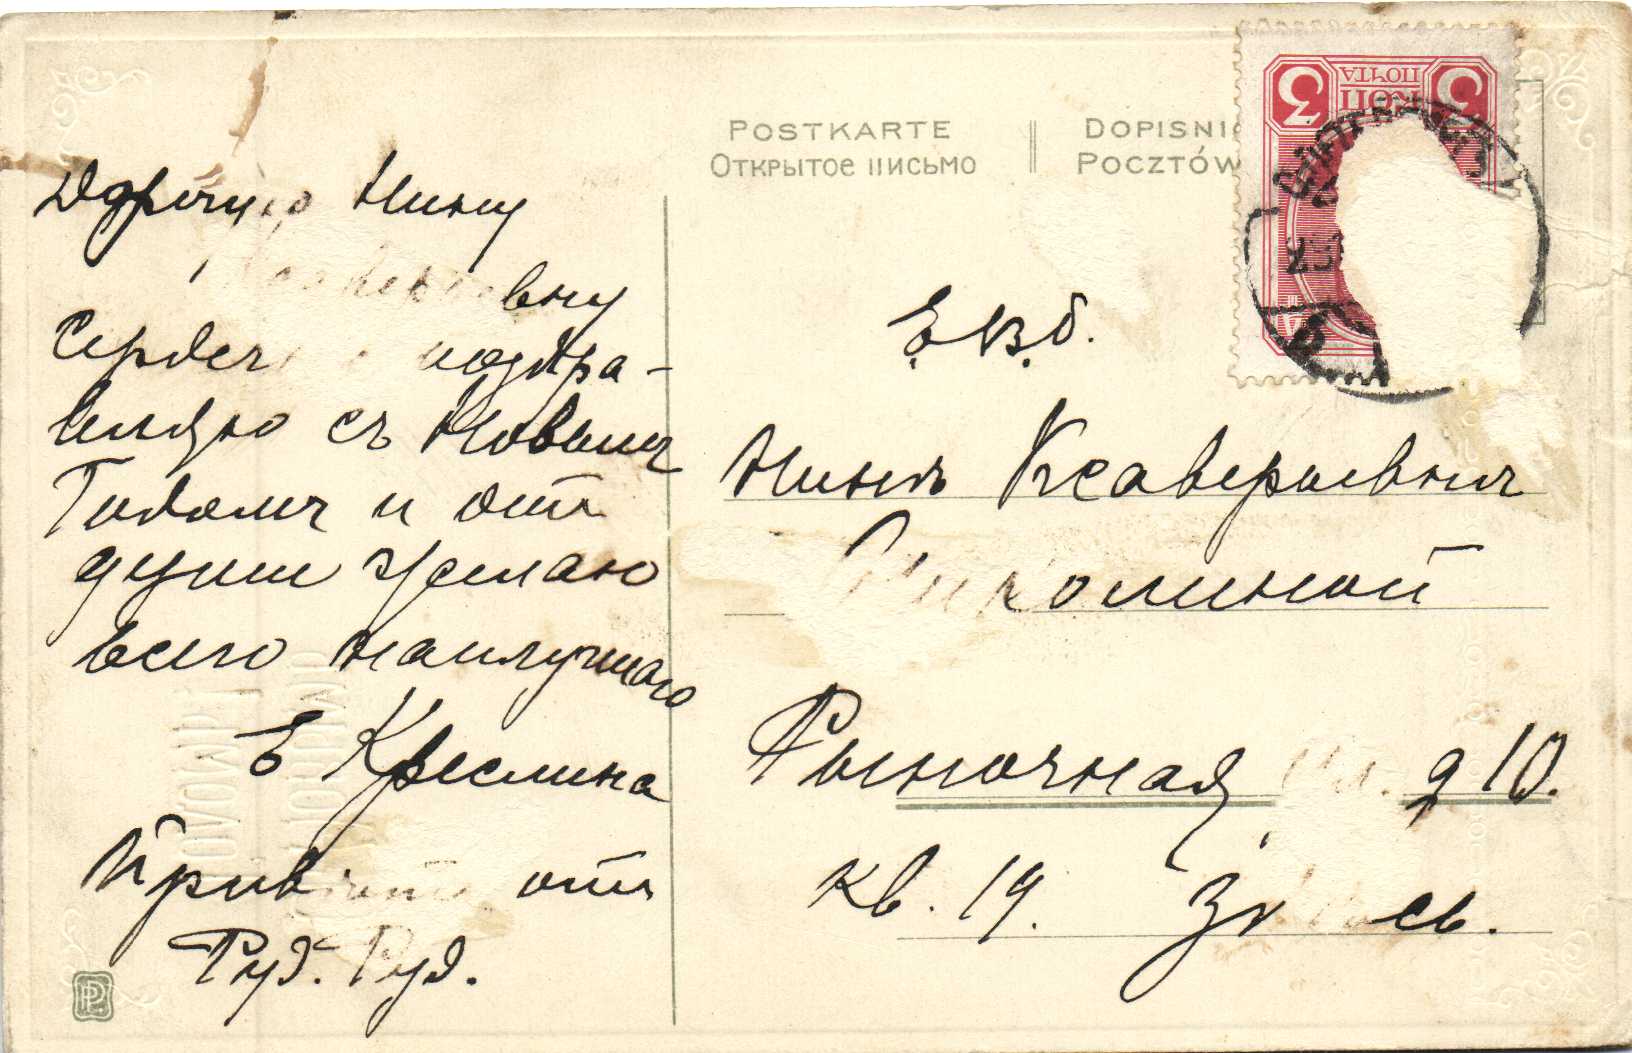 POSTKARTE
DOPISNI
Открытое письмо
POCZTÓW
3 КОП 3
ПОЧТА
Дорогую Нину
вну
Сердеч поздра-
вляю съ Новымъ
Годомъ и отъ
души желаю
всего наилучшаго
Е Креслина
Привѣтъ отъ
Руд. Руд.
Е. В. б.
Нинѣ Ксаверьевнѣ
колиной
Рыночная д 10.
кв. 19. Здѣсь.
PP